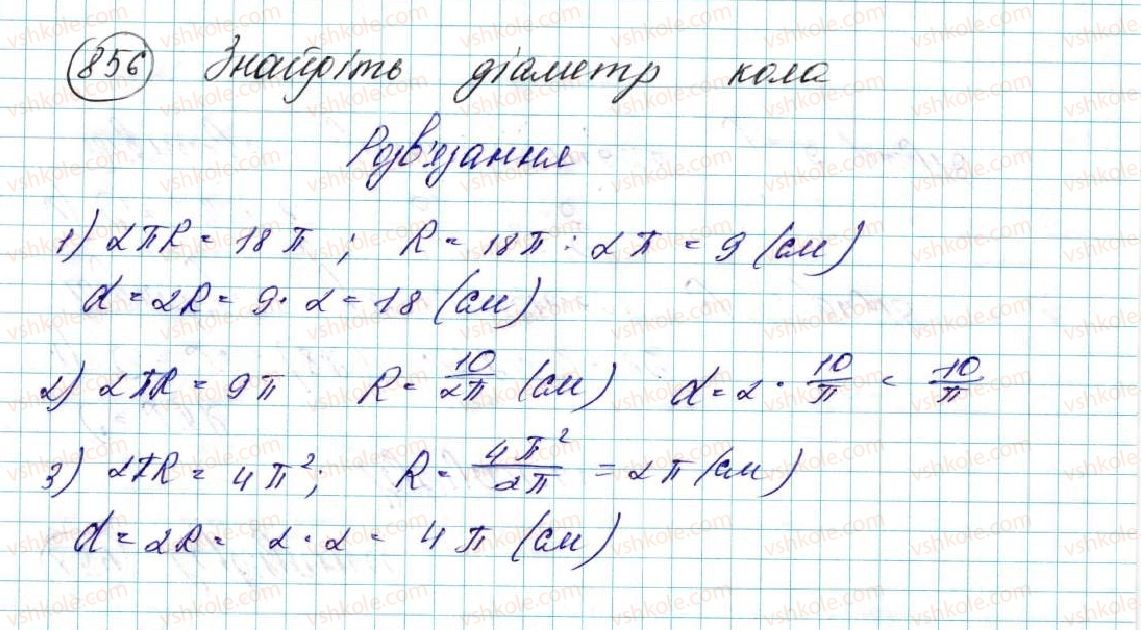 856 Знайдіть діаметр кола
Розв'язання
1) 2πR = 18π ; R = 18π : 2π = 9 (см)
d = 2R = 9 · 2 = 18 (см)
2) 2πR = 9π R = 10/2π (см) d = 2 · 10/π = 10/π
3) 2πR = 4π²; R = 4π²/2π = 2π (см)
d = 2R = 2 · 2 = 4π (см)